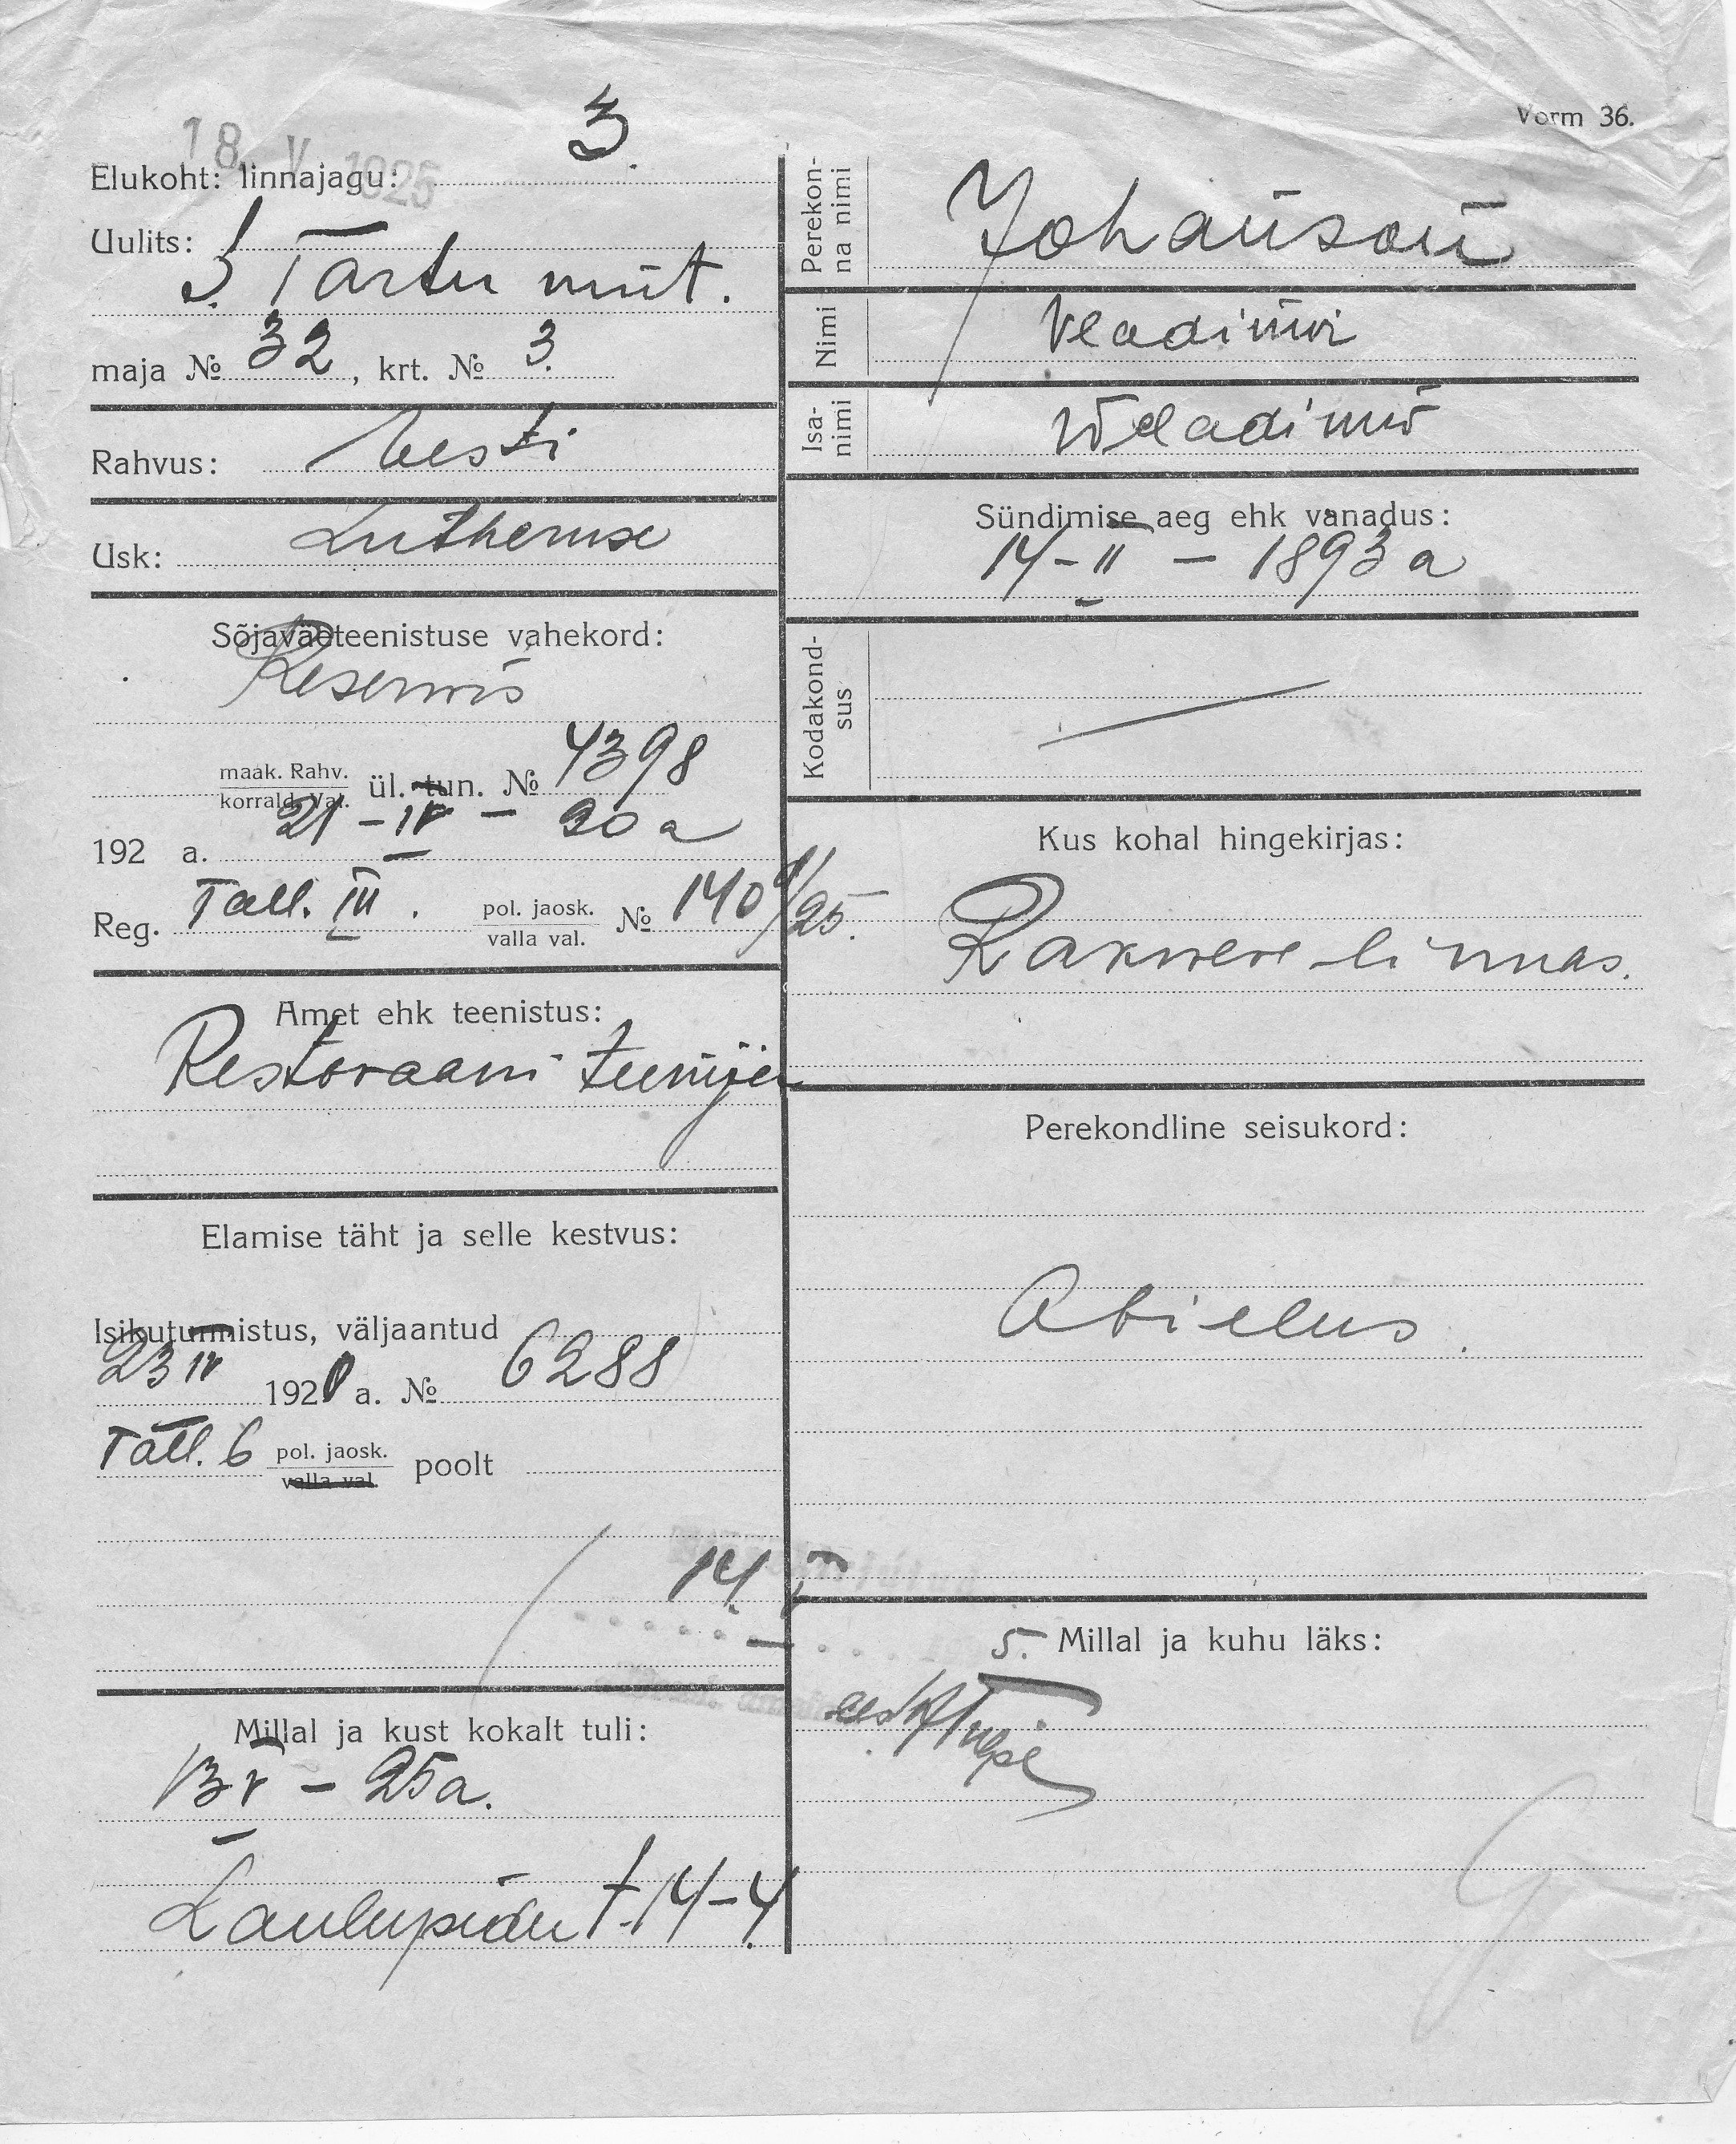 Vorm 36.
18. V 1925
3.
Elukoht: linnajagu:
Uulits:
S. Tartu mnt.
maja № 32, krt. № 3.
Rahvus: Eesti
Usk: Lutheruse
Sõjaväeteenistuse vahekord:
Reservis
maak. Rahv.
korrald. Val. ül. tun. № 4398
21 – IV – 20 a
192 a.
Reg. Tall. III. pol. jaosk.
valla val. № 1409/25.
Amet ehk teenistus:
Restoraani teenija
Elamise täht ja selle kestvus:
Isikutunnistus, väljaantud
23 IV 1920 a. № 6288
Tall. 6 pol. jaosk.
valla val. poolt
14. V
Millal ja kust kokalt tuli:
13 V – 25 a.
Laulupidu t. 14–4
Perekon-
na nimi
Johanson
Nimi
Vladimir
Isa-
nimi
Wladimir
Sündimise aeg ehk vanadus:
14 – II – 1893 a
Kodakond-
sus
Kus kohal hingekirjas:
Rakwere linnas.
Perekondline seisukord:
Abielus.
5. Millal ja kuhu läks: